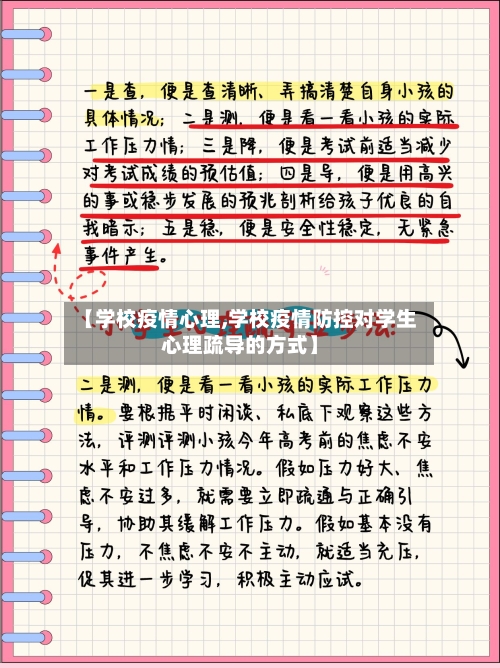 一是查，便是查清晰、弄搞清楚自身小孩的
具体情况；二是测，便是看一看小孩的实际
工作压力情；三是降，便是考试前适当减少
对考试成绩的预估值；四是导，便是用高兴
的事或稳步发展的预兆剖析给孩子优良的自
我暗示；五是稳，便是安全性稳定，无紧急
事件产生。
【学校疫情心理,学校疫情防控对学生
心理疏导的方式】
二是测，便是看一看小孩的实际工作压力
情。要根据平时闲谈、私底下观察这些方
法，评测评测小孩今年高考前的焦虑不安
水平和工作压力情况。假如压力好大、焦
虑不安过多，就需要立即疏通与正确引
导，协助其缓解工作压力。假如基本没有
压力，不焦虑不安不主动，就适当充压，
促其进一步学习，积极主动应试。